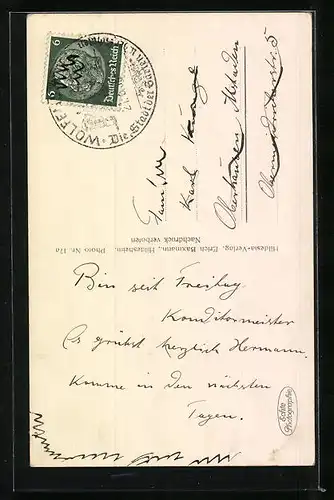 6 Deutsches Reich 6
WOLFE
Die Stadt der Gärten u.
Fam.
Karl
Oberhausen
Hildesia-Verlag, Erich Baxmann, Hildesheim,
Nachdruck verboten
Photo Nr. 17a
Bin seit Freitag
Konditormeister
Es grüßt herzlich Hermann.
Komme in den nächsten
Tagen.
Echte
Photographie